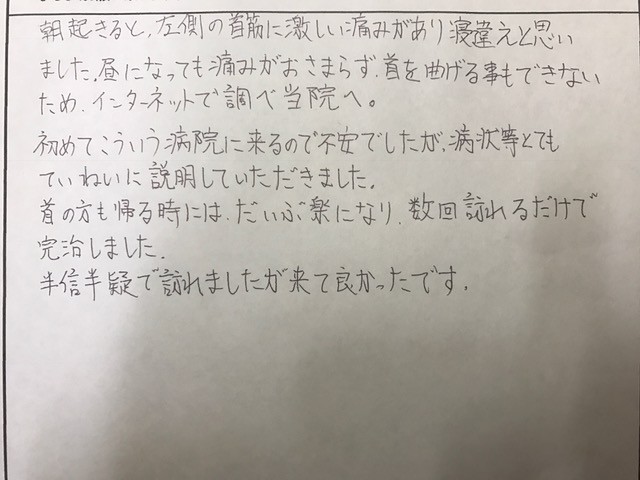 朝起きると、左側の首筋に激しい痛みがあり寝違えと思い
ました。昼になっても痛みがおさまらず、首を曲げる事もできない
ため、インターネットで調べ当院へ。
初めてこういう病院に来るので不安でしたが、病状等とても
ていねいに説明していただきました。
首の方も帰る時には、だいぶ楽になり、数回訪れるだけで
完治しました。
半信半疑で訪れましたが来て良かったです。